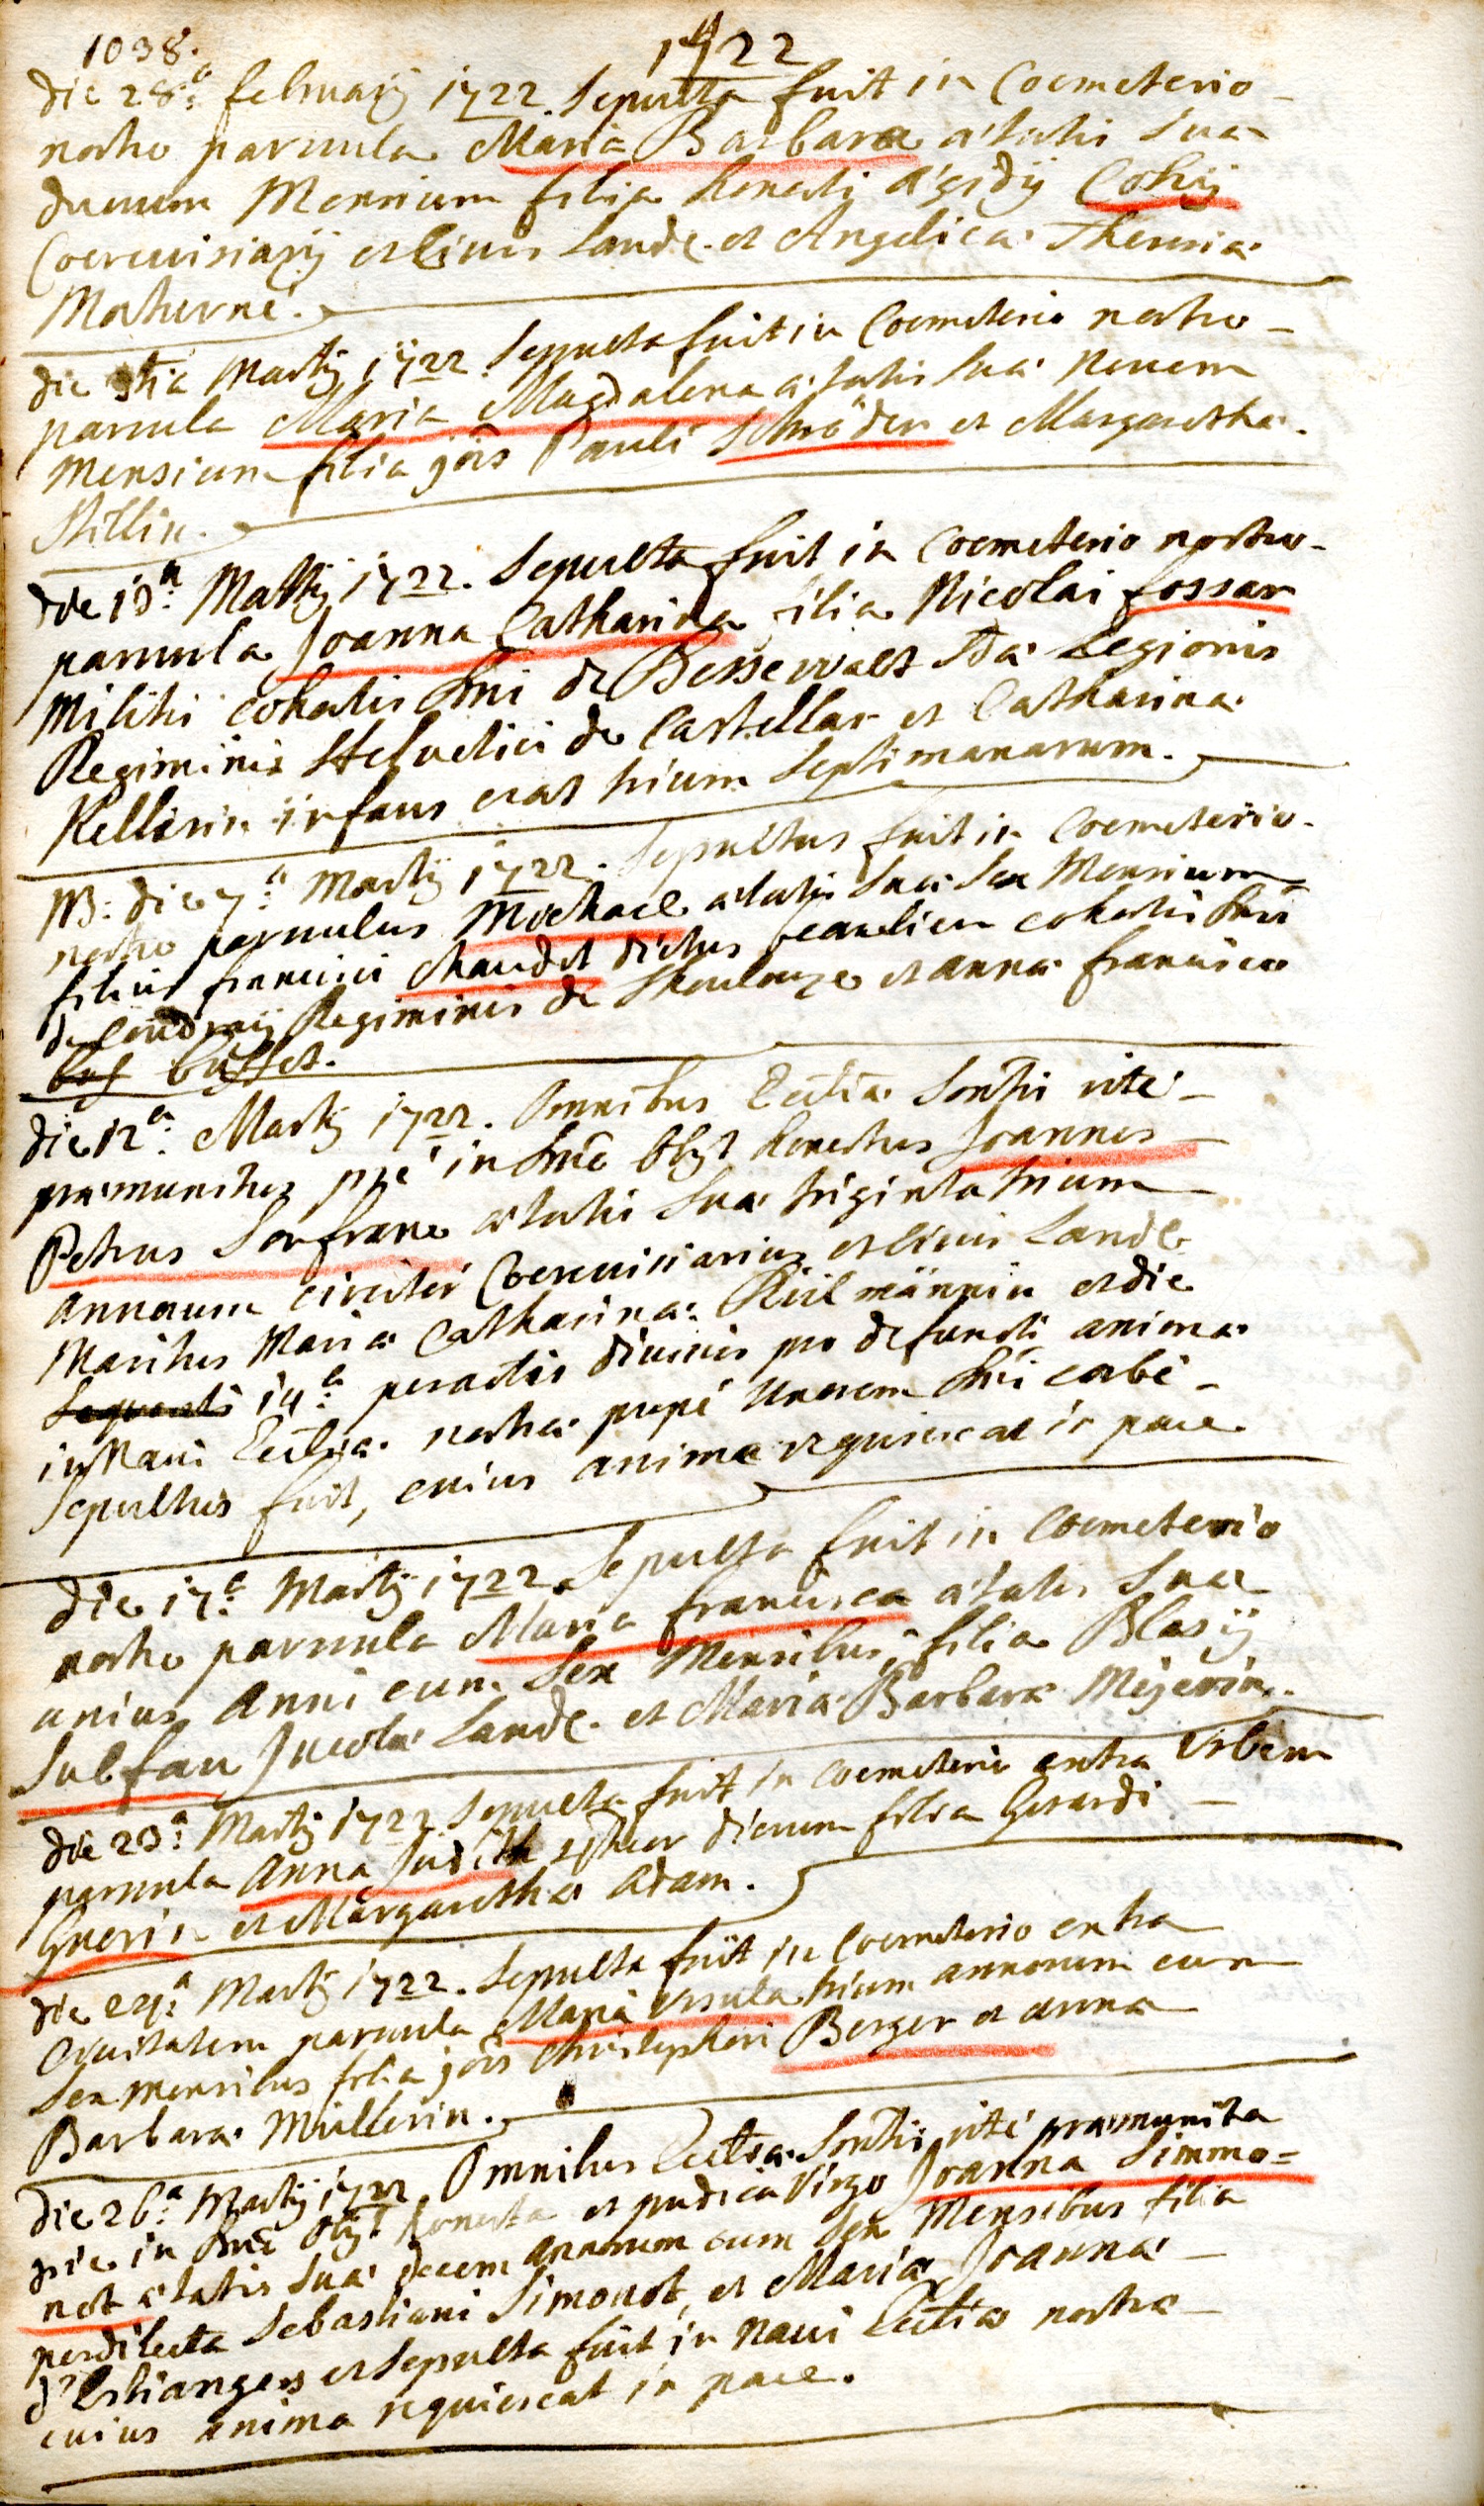 1038.
1722
die 28a: februarij 1722. Sepulta fuit in Coemeterio
nostro parvula Maria Barbara ætatis suæ
duum Mensium filia honesti Ægidij Cohij
Coerevisiarij et civis Landæ. et Angelicæ Theresiæ
Materne.
die Martij 1722. Sepulta fuit in Coemeterio nostro
parvula Maria Magdalena ætatis suæ novem
mensium filia jois Pauli Schröder et Margarethæ
Stillin.
die 13a: Martij 1722. Sepulta fuit in Coemeterio nostro
parvula Joanna Catharina filia Nicolai fossar
Militis cohortis Dni de Bessewalt Legionis
Regiminis Helvetici de Castellar et Catharinæ
Kellerin infans erat trium Septimanarum.
NB: die 7a: Martij 1722. Sepultus fuit in Coemeterio
nostro parvulus Michael ætatis suæ sex Mensium
filius francisci chaudot dictus cohortis Dni
de Coudraij Regiminis de Thoulouze et annæ franciscæ
buffet.
die 12a: Martij 1722. Omnibus Eccliæ Sontis rite
præmunitus pie in Dno obijt honestus Joannes
Petrus Sonfranc ætatis suæ triginta trium
annorum circiter Coerevisiarius et civis Landæ
Maritus Mariæ Catharinæ Kielmännin et die
Sequenti 14a peractis divinis pro defuncti anima
in Navi Eccliæ nostræ prope
Sepultus fuit, cuius anima requiescat in pace.
die 17a: Martij 1722. Sepulta fuit in Coemeterio
nostro parvula Maria francisca ætatis suæ
unius Anni cum Sex Mensibus, filia Blasij
Sulfau Incolæ Landæ. et Mariæ Barbaræ Meyerin.
die 23a: Martij 1722. Sepulta fuit in coemeterio extra Urbem
parvula Anna Judith dierum filia Gerardi
Guerin et Margarethæ Adam.
die 24a: Martij 1722. Sepulta fuit in Coemeterio extra
Civitatem parvula Maria Ursula trium annorum cum
sex mensibus filia jois Christophori Berger et anna
Barbaræ Müllerin.
die 26a: Martij 1722. Omnibus Eccliæ Sontis rite præmunita
pie in Dno obijt honesta et pudica Virgo Joanna Simmo=
not ætatis suæ decem annorum cum sex Mensibus filia
perdilecta Sebastiani Simonot, et Mariæ Joannæ
d'Estianges et Sepulta fuit in Navi Eccliæ nostræ
cuius anima requiescat in pace.